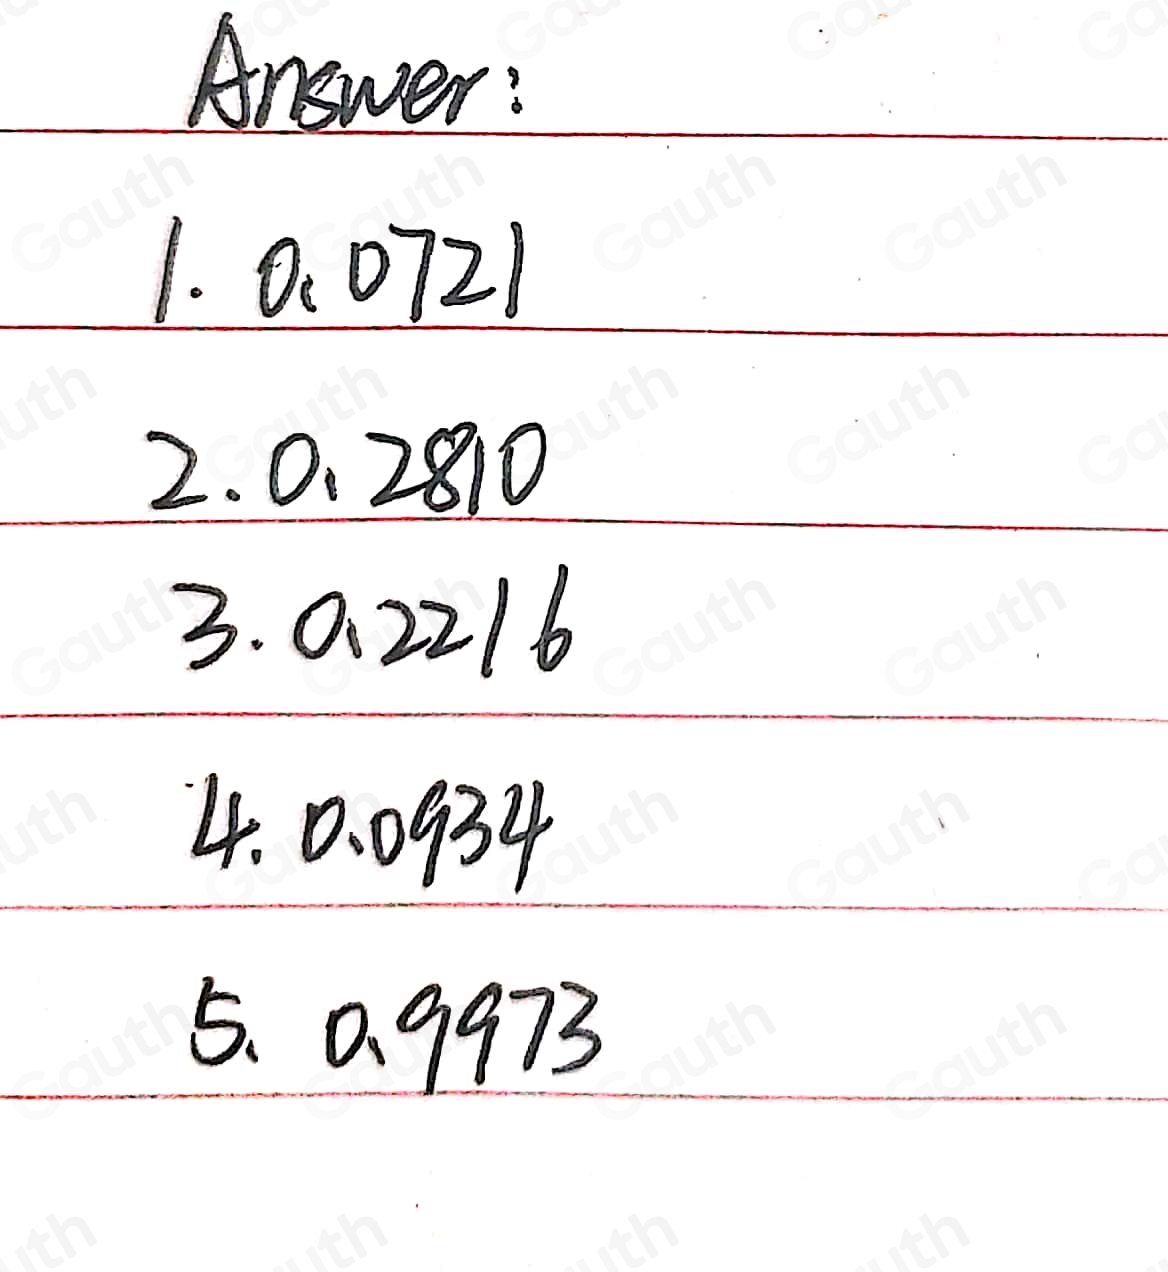 Answer:
1. 0.0721
2. 0.2810
3. 0.2216
4. 0.0934
5. 0.9973